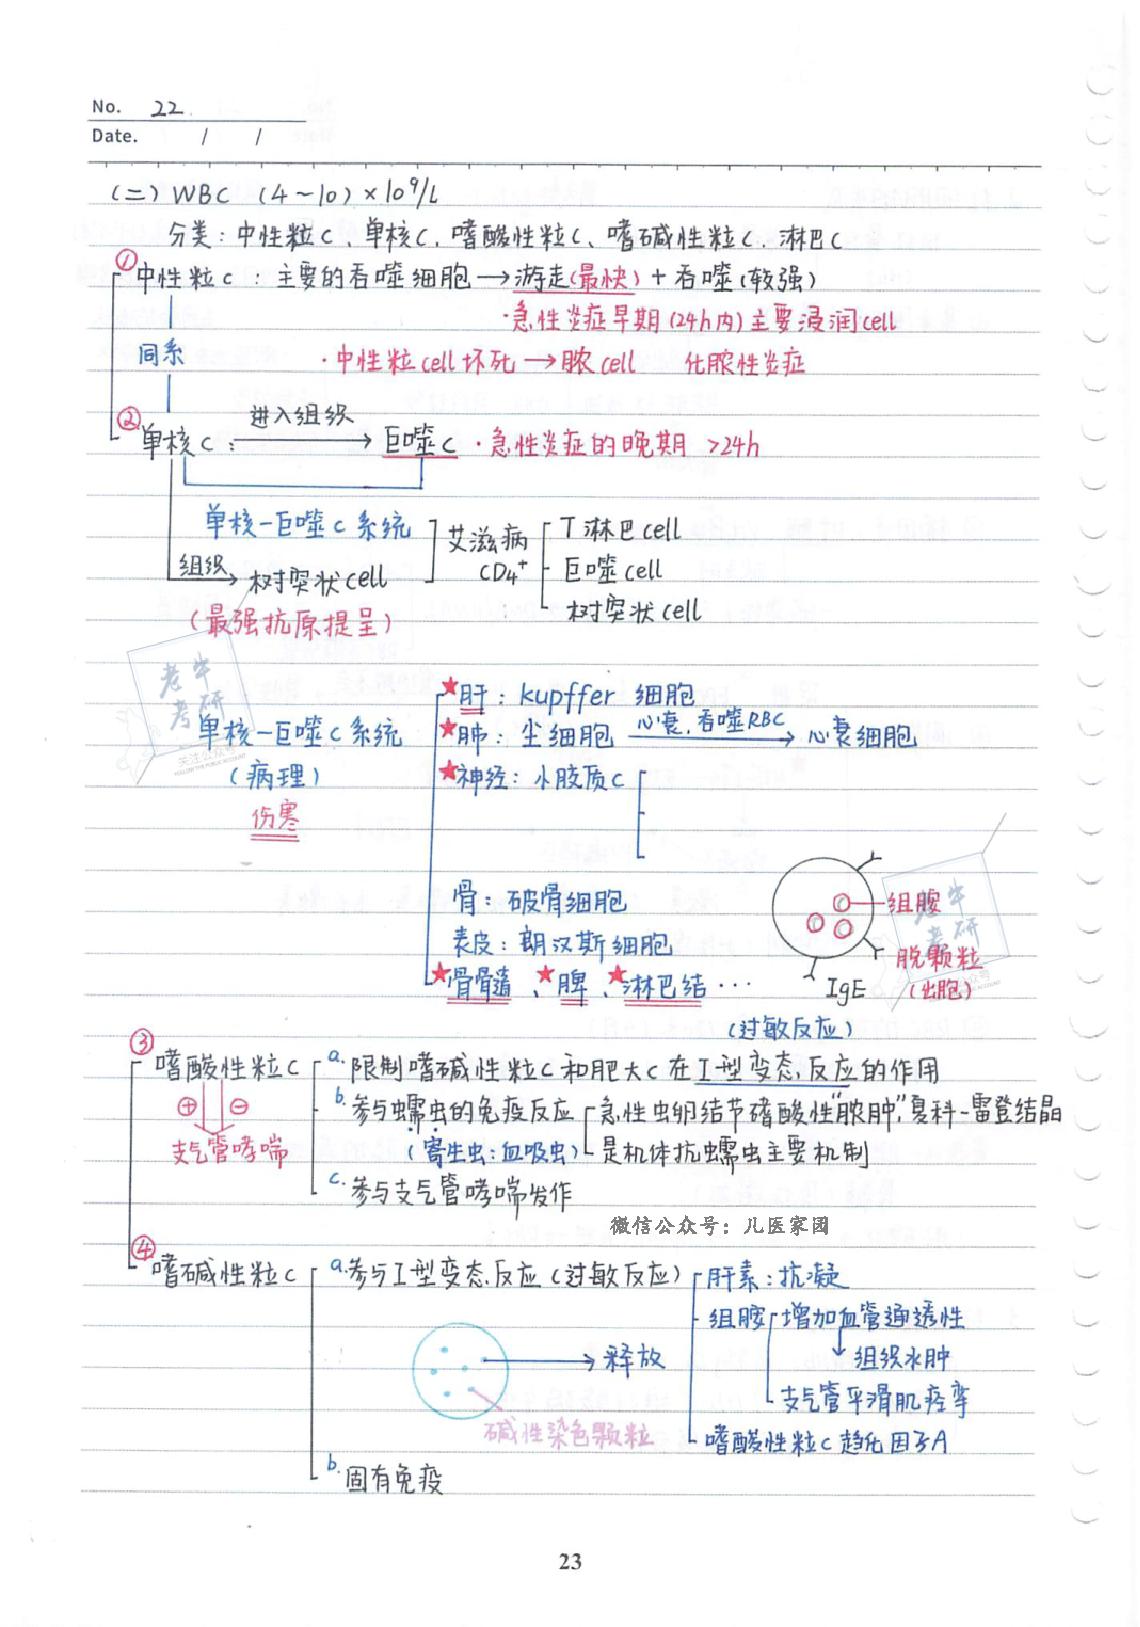 No. 22
Date. / /
(二) WBC (4~10)×10⁹/L
分类：中性粒C、单核C、嗜酸性粒C、嗜碱性粒C、淋巴C
① 中性粒C：主要的吞噬细胞→游走(最快)+吞噬(较强)
·急性炎症早期(24h内)主要浸润cell
同系
·中性粒cell坏死→脓cell 化脓性炎症
② 单核C： 进入组织→ 巨噬C ·急性炎症的晚期 >24h
单核-巨噬C系统
组织→树突状cell
(最强抗原提呈)
艾滋病 CD4⁺
T淋巴cell
巨噬cell
树突状cell
单核-巨噬C系统
(病理)
伤寒
★肝：kupffer 细胞
★肺：尘细胞 心衰,吞噬RBC→ 心衰细胞
★神经：小胶质C
骨：破骨细胞
表皮：朗汉斯细胞
★骨骨髓、★脾、★淋巴结···
组胺
脱颗粒
(出胞)
IgE
(过敏反应)
③ 嗜酸性粒C
⊕ ⊖
支气管哮喘
a.限制嗜碱性粒C和肥大C在I型变态反应的作用
b.参与蠕虫的免疫反应
(寄生虫:血吸虫)
急性虫卵结节嗜酸性"脓肿",夏科-雷登结晶
是机体抗蠕虫主要机制
c.参与支气管哮喘发作
微信公众号：儿医家园
④ 嗜碱性粒C
a.参与I型变态反应(过敏反应)
→释放
碱性染色颗粒
肝素：抗凝
组胺
增加血管通透性
↓组织水肿
支气管平滑肌痉挛
嗜酸性粒C趋化因子A
b.固有免疫
老牛考研
关注公众号
老牛考研
23